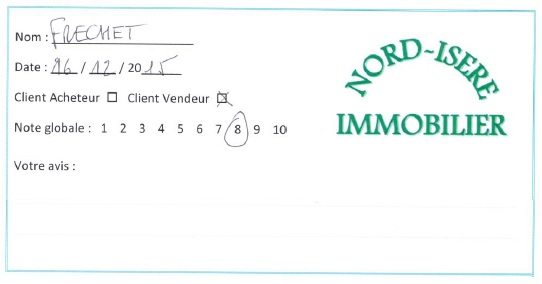 Nom : FRECHET
Date : 16 / 12 / 2015
Client Acheteur ☐ Client Vendeur ☒
Note globale : 1 2 3 4 5 6 7 8 9 10
Votre avis :
NORD-ISERE
IMMOBILIER